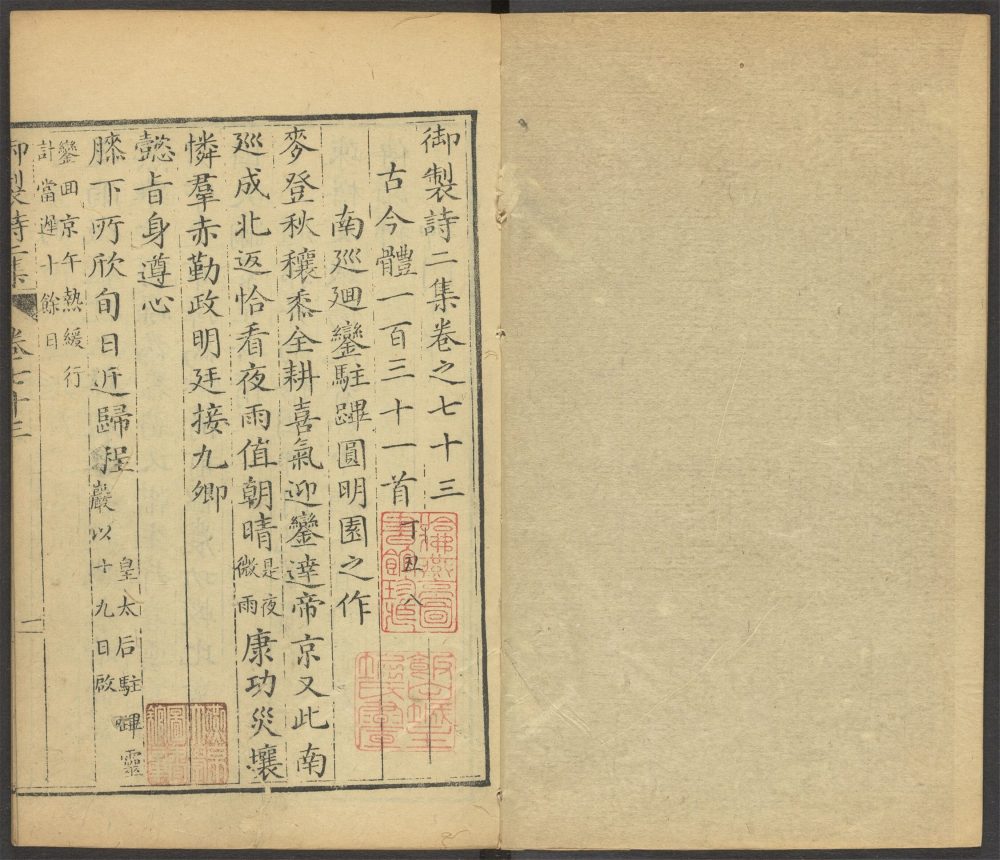 御製詩二集卷之七十三
古今體一百三十一首 丁丑八
南廵迴鑾駐蹕圓明園之作
麥登秋穰黍全耕喜氣迎鑾達帝京又此南
廵成北返恰看夜雨值朝晴是夜微雨康功災壤
憐羣赤勤政明廷接九卿
懿旨身遵心
膝下所欣旬日近歸程皇太后駐蹕靈巖以十九日啟
鑾回京午熱緩行計當遲十餘日
御製詩二集 卷七十三 一